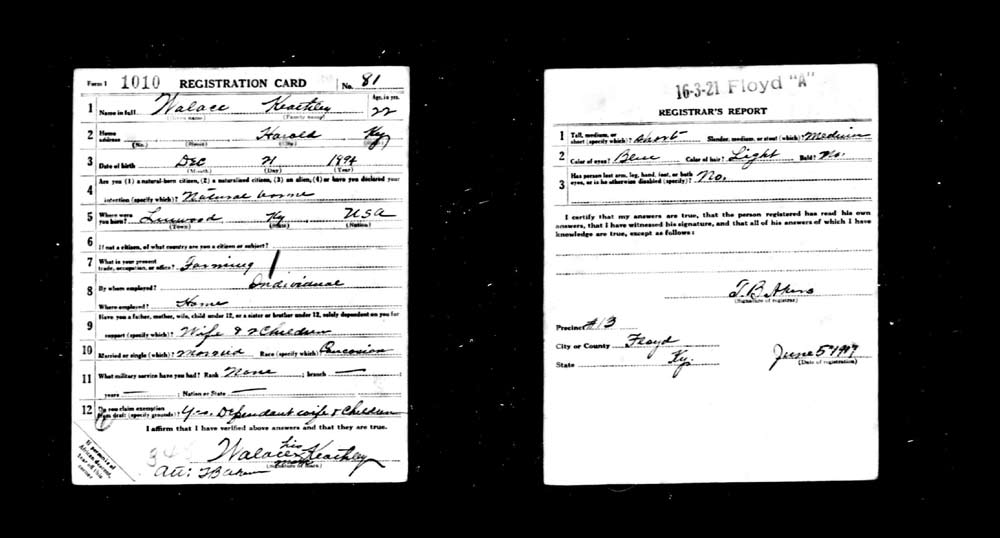 Form 1 1010 REGISTRATION CARD No. 81
1 Name in full Walace Keathley Age, in yrs. 22
(Given name) (Family name)
2 Home address Harold Ky
(No.) (Street) (City) (State)
3 Date of birth Dec 21 1894
(Month) (Day) (Year)
Are you (1) a natural-born citizen, (2) a naturalized citizen, (3) an alien, (4) or have you declared your
4 intention (specify which)? Natural borne
5 Where were you born? Ky USA
(Town) (State) (Nation)
6 If not a citizen, of what country are you a citizen or subject?
7 What is your present trade, occupation, or office? Farming
8 By whom employed? Individual
Where employed? Home
9 Have you a father, mother, wife, child under 12, or a sister or brother under 12, solely dependent on you for
support (specify which)? Wife & 2 Children
10 Married or single (which)? Married Race (specify which)? Caucasian
11 What military service have you had? Rank None ; branch —
years — ; Nation or State —
12 Do you claim exemption from draft (specify grounds)? Yes. Dependant wife & Children
I affirm that I have verified above answers and that they are true.
his
Walace Keathley
mark
(Signature or mark)
Att: T B Akers
If person is of African descent, tear off this corner
16-3-21 Floyd "A"
REGISTRAR'S REPORT
1 Tall, medium, or short (specify which)? Short Slender, medium, or stout (which)? Medium
2 Color of eyes? Blue Color of hair? Light Bald? No.
3 Has person lost arm, leg, hand, foot, or both eyes, or is he otherwise disabled (specify)? No.
I certify that my answers are true, that the person registered has read his own
answers, that I have witnessed his signature, and that all of his answers of which I have
knowledge are true, except as follows:
T. B. Akers
(Signature of registrar)
Precinct #13
City or County Floyd
State Ky. June 5" 1917
(Date of registration)